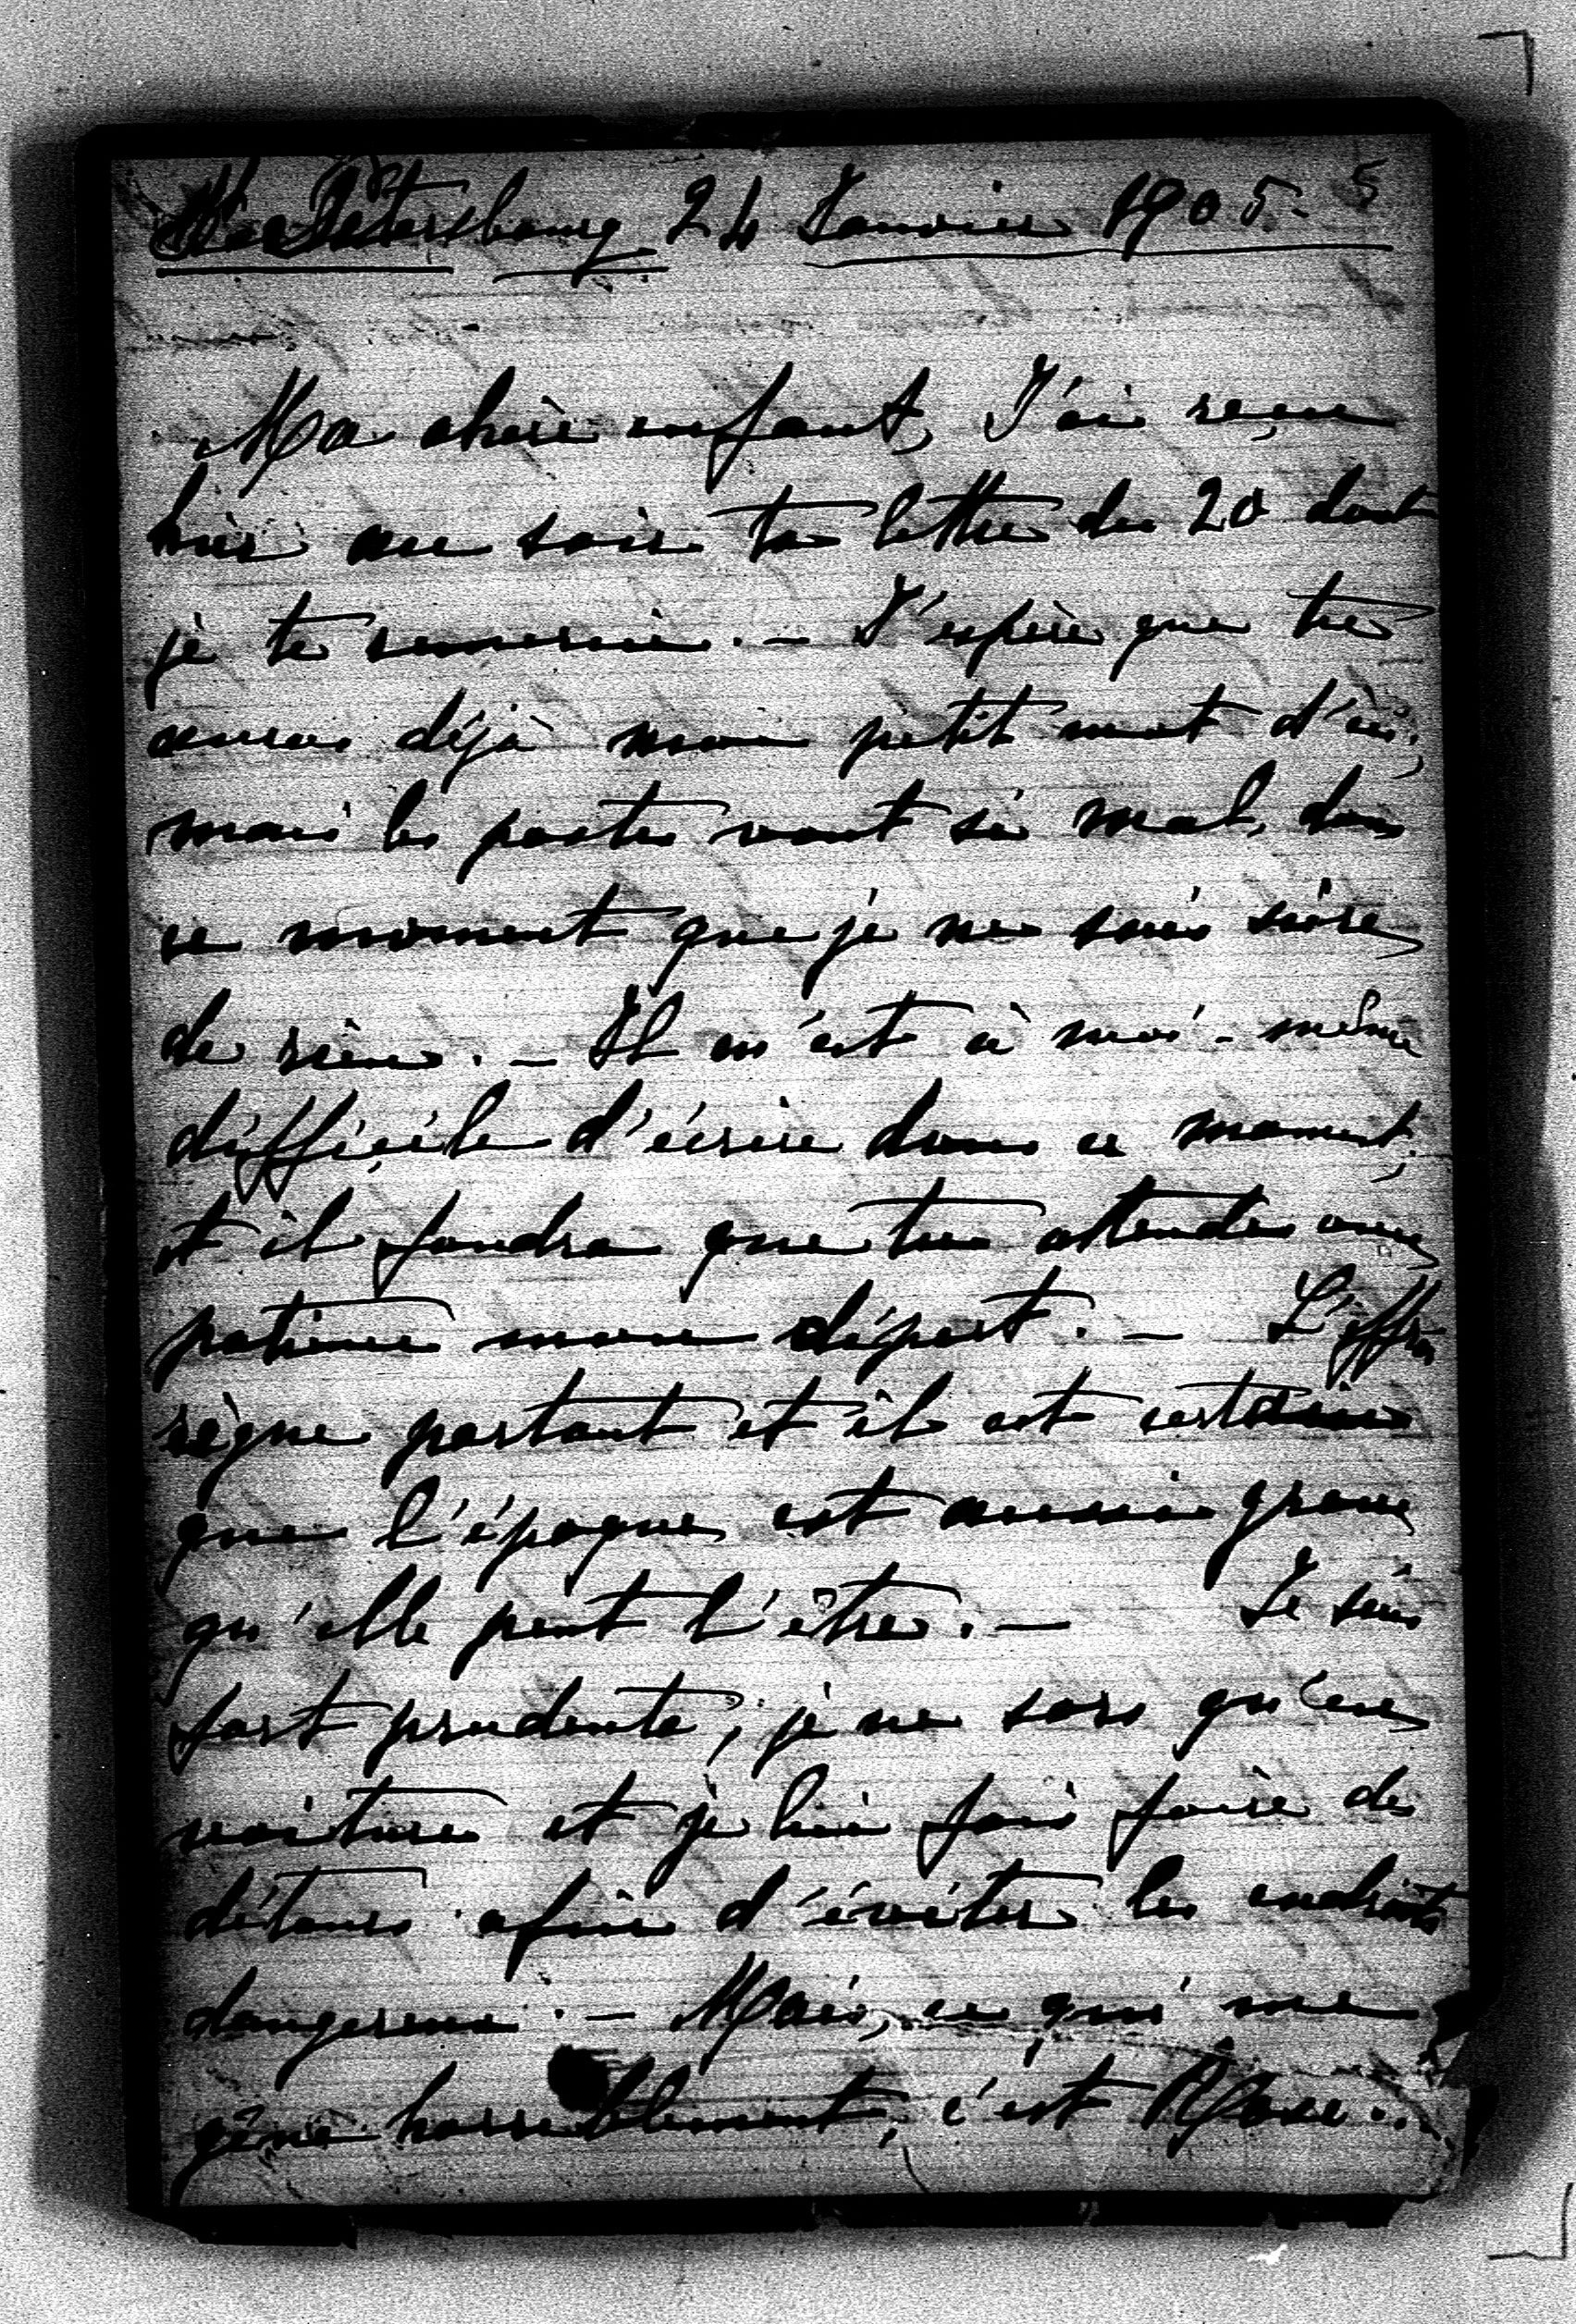 St Petersbourg 24 Janvier 1905. 5
Ma chère enfant, J'ai reçu
hier au soir ta lettre du 20 dont
je te remercie. — J'espère que tu
auras déjà mon petit mot d'ici,
mais les postes vont si mal dans
ce moment que je ne suis sûre
de rien. — Il m'est à moi-même
difficile d'écrire dans ce moment,
et il faudra que tu attendes avec
patience mon départ. — L'effroi
règne partout et il est certain
que l'époque est aussi grave
qu'elle peut l'être. — Je suis
fort prudente, je ne sors qu'en
voiture et je lui fais faire des
détours afin d'éviter les endroits
dangereux. — Mais, ce qui me
gêne horriblement, c'est Rose..